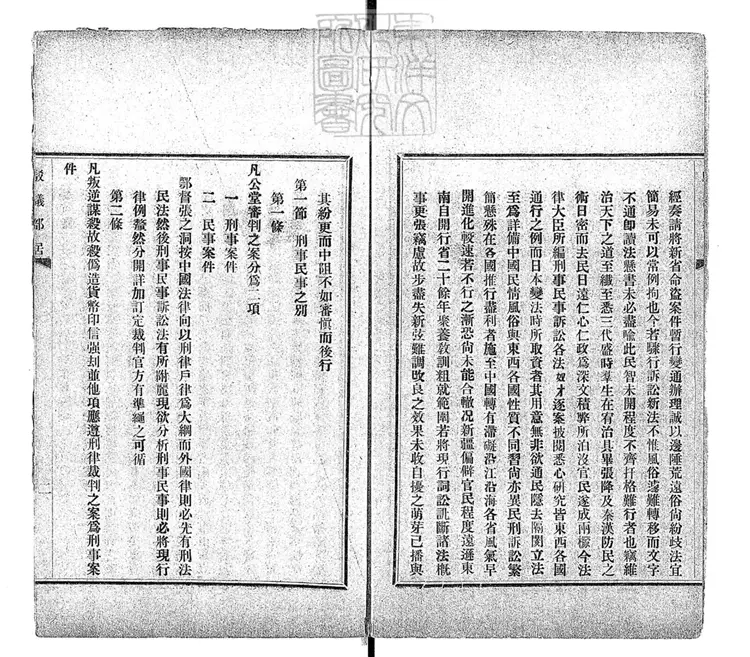 經奏請將新省命盜案件暫行變通辦理誠以邊陲荒遠俗尙紛歧法宜
簡易未可以常例拘也今若驟行訴訟新法不惟風俗遽難轉移而文字
不通卽讀法懸書未必盡喻此民智未開程度不齊扞格難行者也竊維
治天下之道至纖至悉三代盛時羣生在宥治具畢張降及秦漢防民之
術日密而去民日遠仁心仁政爲深文積弊所汨沒官民遂成兩橛今法
律大臣所編刑事民事訴訟各法奴才逐案披閱悉心研究皆東西各國
通行之例而日本變法時所取資者其用意無非欲通民隱去隔閡立法
至爲詳備中國民情風俗與東西各國性質不同習尙亦異民刑訴訟繁
簡懸殊在各國推行盡利者施至中國轉有滯礙沿江沿海各省風氣早
開進化較速若不行之漸恐尙未能合轍況新疆偏僻官民程度遠遜東
南自開行省二十餘年來養敎訓粗就範圍若將現行詞訟訊斷諸法槪
事更張竊慮故步盡失新弦難調改良之效果未收自擾之萌芽已播與
其紛更而中阻不如審愼而後行
第一節 刑事民事之別
第一條
凡公堂審判之案分爲二項
一 刑事案件
二 民事案件
鄂督張之洞按中國法律向以刑律戶律爲大綱而外國律則必先有刑法
民法然後刑事民事訴訟法有所附麗現欲分析刑事民事則必將現行
律例釐然分開詳加訂定裁判官方有準繩之可循
第二條
凡叛逆謀殺故殺僞造貨幣印信强刦並他項應遵刑律裁判之案爲刑事案
件